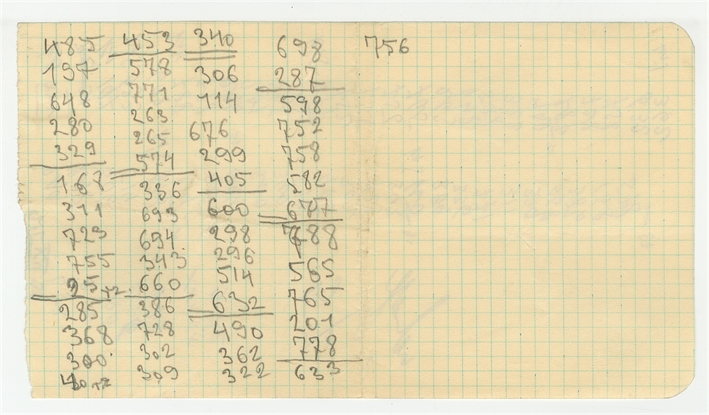 485
197
648
280
329
168
311
723
755
285
368
300
453
578
771
263
265
574
336
693
694
343
660
386
728
302
309
340
306
114
676
299
405
600
298
296
514
632
490
362
322
698
287
598
752
758
582
677
788
565
765
201
778
633
756